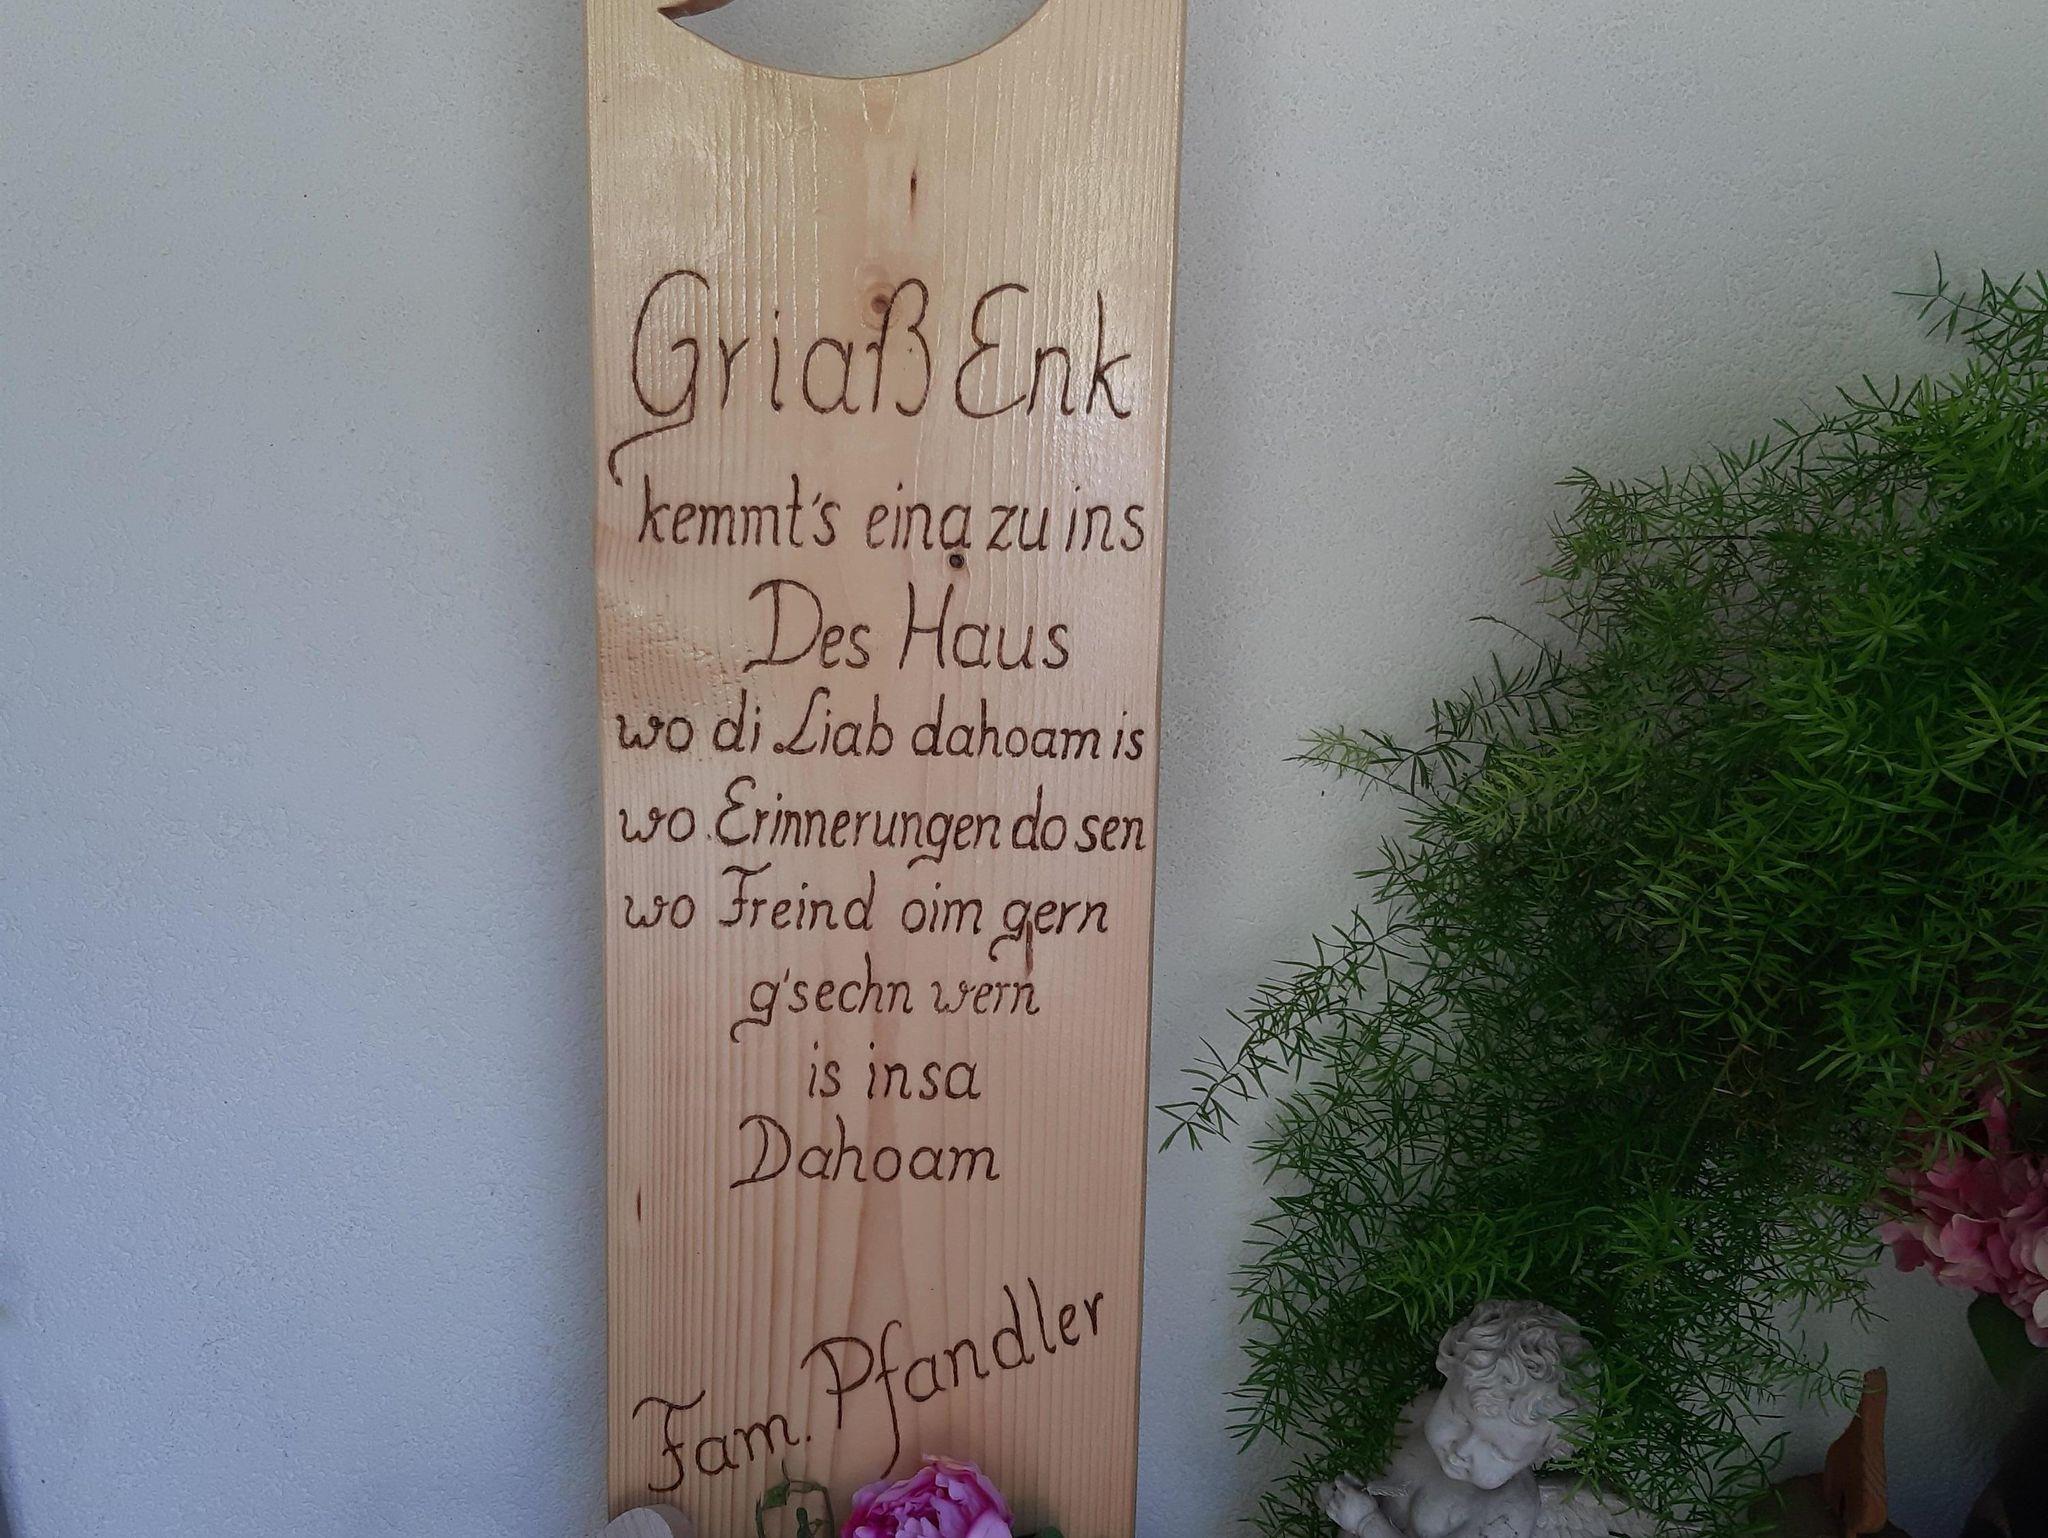 Griaß Enk
kemmt's eina zu ins
Des Haus
wo di Liab dahoam is
wo Erinnerungen do sen
wo Freind oim gern
g'sechn wern
is insa
Dahoam
Fam. Pfandler